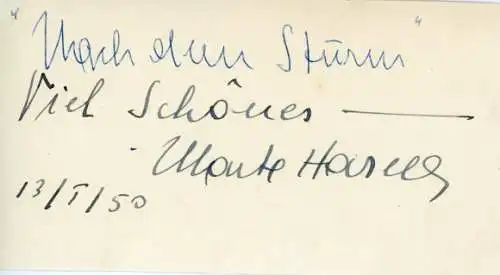 "Nach dem Sturm"
Viel Schönes —
Marte Harell
13/I/50